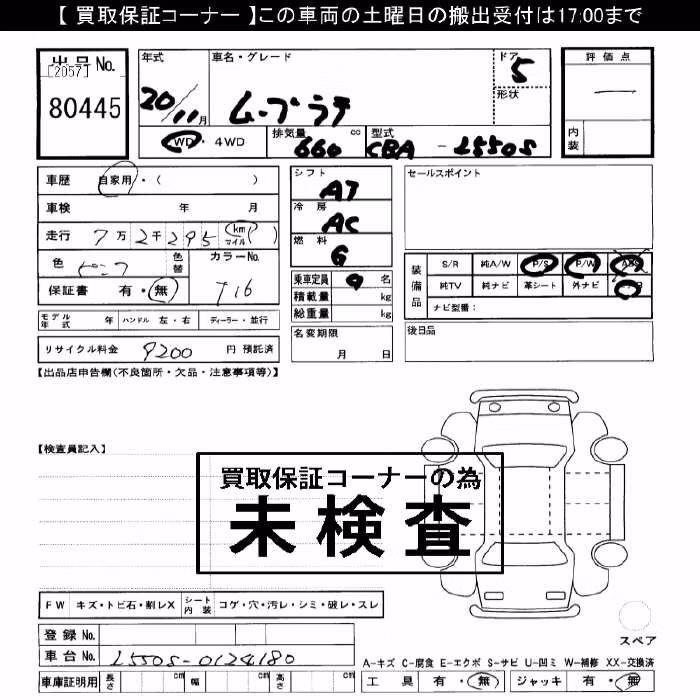 【 買取保証コーナー 】この車両の土曜日の搬出受付は17:00まで
出品 No.
[2057]
80445
年式 20/11月
車名・グレード ムーブラテ
ドア 5
形状
評価点 —
内装
WD・4WD
排気量 660 cc
型式 CBA - L550S
車歴 自家用・( )
車検 年 月
走行 7万2千295 (km マイル)
色 ピンク
色替
カラーNo. T16
保証書 有・無
モデル年式 年 ハンドル 左・右 ディーラー・並行
リサイクル料金 9200 円 預託済
シフト AT
冷房 AC
燃料 G
乗車定員 名
積載量 kg
総重量 kg
名変期限
月 日
セールスポイント
装備品
S/R 純A/W P/S P/W ABS
純TV 純ナビ 革シート 外ナビ
ナビ型番:
後日品
【出品店申告欄(不良箇所・欠品・注意事項等)】
【検査員記入】
買取保証コーナーの為
未検査
FW キズ・トビ石・割レX シート内装 コゲ・穴・汚レ・シミ・破レ・スレ
登録 No.
車台 No. L550S-0124180
車庫証明用 長さ cm 幅 cm 高さ cm
スペア
A-キズ C-腐食 E-エクボ S-サビ U-凹ミ W-補修 XX-交換済
工具 有・無 ジャッキ 有・無